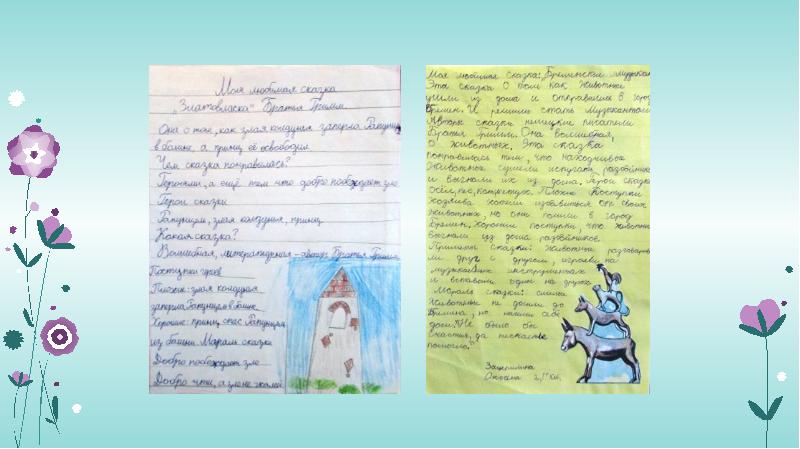 Моя любимая сказка
„Златовласка" Братья Гримм
Она о том, как злая колдунья заперла Рапунцель
в башне, а принц её освободил.
Чем сказка понравилась?
Героями, а ещё тем что добро побеждает зло
Герои сказки
Рапунцель, злая колдунья, принц
Какая сказка?
Волшебная, литературная - авторы Братья Гримм
Поступки героев
Плохие: злая колдунья
заперла Рапунцель в башне
Хорошие: принц спас Рапунцель
из башни. Мораль сказки
Добро побеждает зло
Добро чти, а зло не жалей
Моя любимая сказка: Бременские музыканты
Эта сказка о том как животные
ушли из дома и отправились в город
Бремен. И решили стать музыкантами.
Авторы сказки немецкие писатели
Братья Гримм. Она волшебная,
о животных. Эта сказка
понравилась тем, что находчивые
животные сумели испугать разбойников
и выгнали их из дома. Герои сказки
Осёл, пёс, кот, петух. Плохие поступки
хозяева хотели избавиться от своих
животных, но они пошли в город
Бремен. Хорошие поступки, что животные
выгнали из дома разбойников.
сказки: животные разговарива
ли друг с другом, играли на
музыкальных инструментах
и вставали один на друга.
Мораль сказки:
животные не дошли до
Бремена, но нашли свой
дом. "Не было бы
счастья, да несчастье
помогло."
2